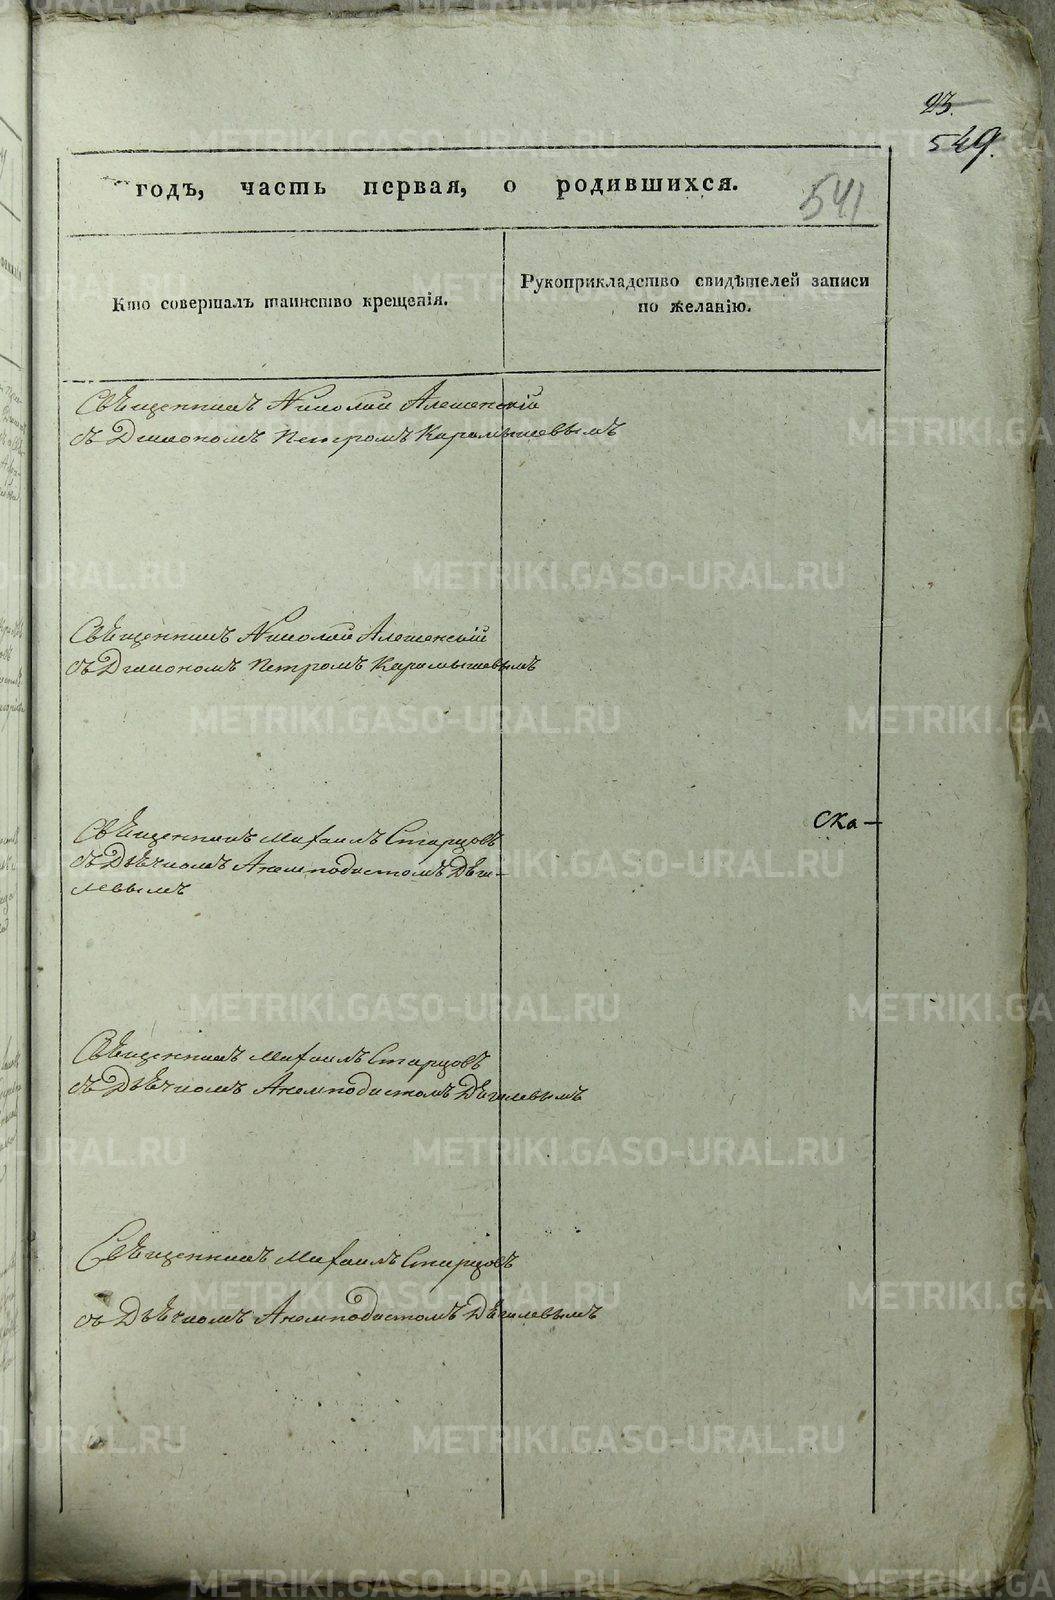 23.
549.
годъ, часть первая, о родившихся.
541
Кто совершалъ таинство крещенія.
Рукоприкладство свидѣтелей записи
по желанію.
Священникъ Николай Алешенскій
съ Діякономъ Петромъ Карамышевымъ
Священникъ Николай Алешенскій
съ Діякономъ Петромъ Карамышевымъ
Священникъ Михаилъ Старцовъ
съ Дьячкомъ Анемподистомъ Дяги-
левымъ
Ска-
Священникъ Михаилъ Старцовъ
съ Дьячкомъ Анемподистомъ Дягилевымъ
Священникъ Михаилъ Старцовъ
съ Дьячкомъ Анемподистомъ Дягилевымъ
METRIKI.GASO-URAL.RU